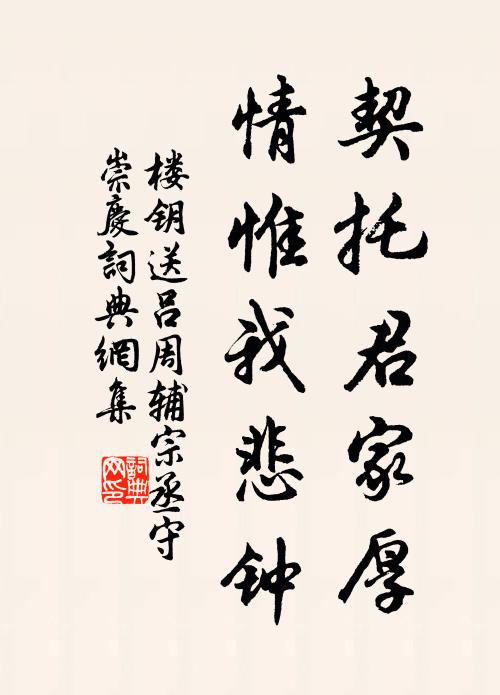 契托君家厚
情惟我悲钟
楼钥送吕周辅宗丞守
崇慶詞典網集
詞典
网印